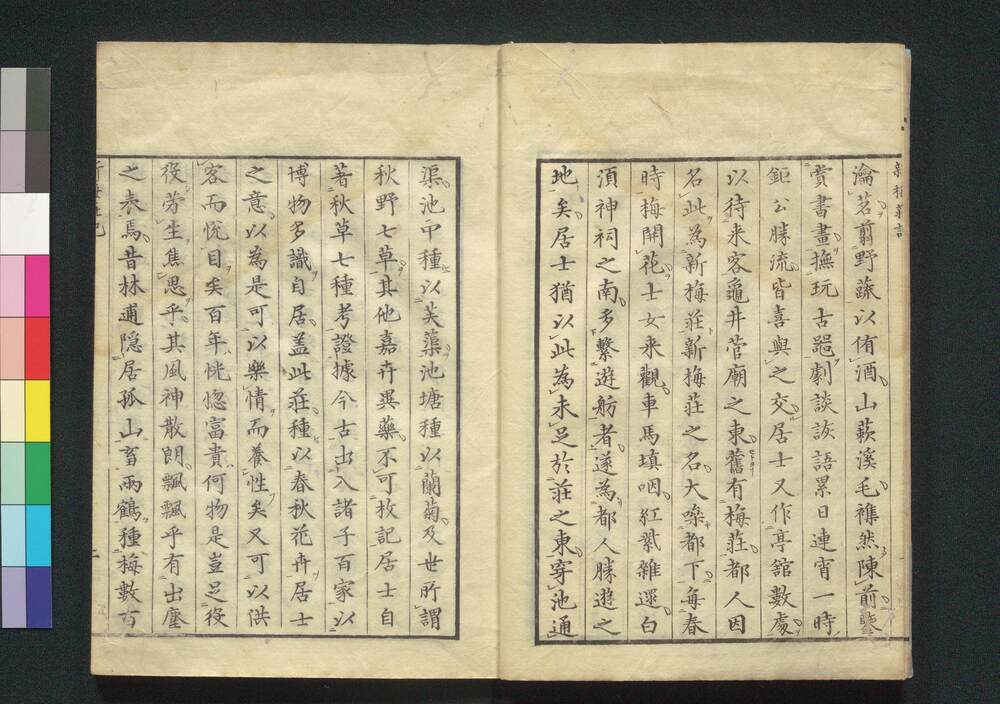 新梅莊記
瀹茗剪野蔬以侑酒山蔌溪毛襍然陳前鑒
賞書畫撫玩古噐劇談詼語累日連宵一時
鉅公勝流皆喜與之交居士又作亭舘數處
以待来客龜井菅廟之東舊有梅莊都人因
名此為新梅莊新梅莊之名大噪都下每春
時梅開花士女来觀車馬填咽紅紫雜遝白
湏神祠之南多繫遊舫者遂為都人勝遊之
地矣居士猶以此為未足於莊之東穿池通
渠池中種以芙蕖池塘種以蘭菊及世所謂
秋野七草其他嘉卉異藥不可枚記居士自
著秋草七種考證據今古出入諸子百家以
博物多識自居盖此莊種以春秋花卉居士
之意以為是可以樂情而養性矣又可以洪
客而悅目矣百年恍惚富貴何物是豈足役
役勞生焦思乎其風神散朗飄飄乎有出塵
之表焉昔林逋隐居孤山畜兩鶴種梅數百